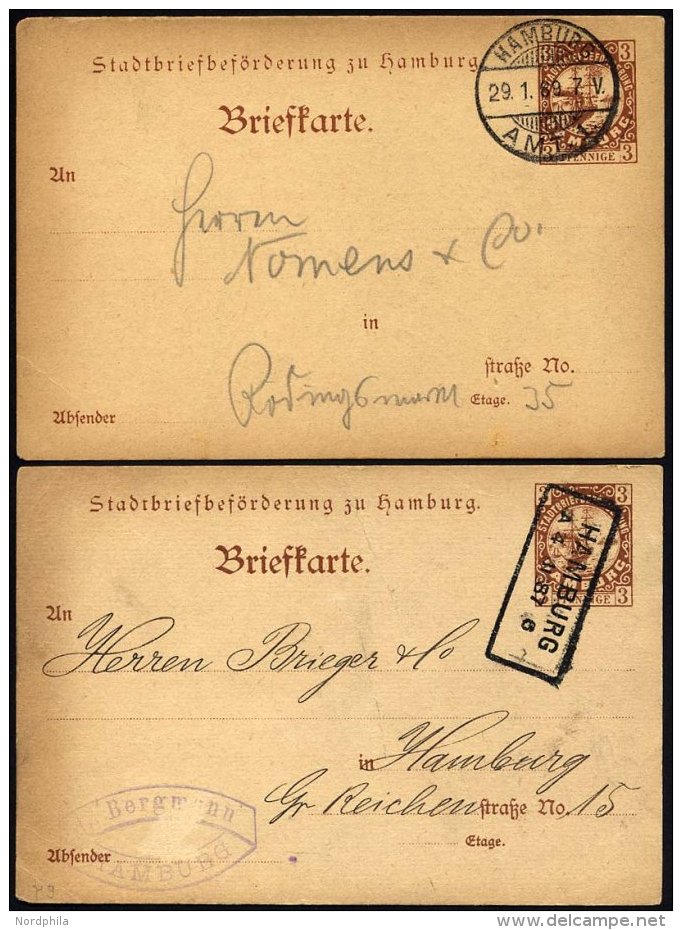 Stadtbriefbeförderung zu Hamburg.
3 3
HAMBURG
29. 1. 69. 7 V.
AMT 1
PFENNIGE 3
Briefkarte.
An
Herrn
Nomens & Co.
in
straße No.
Rödingsmarkt
Etage. 35
Absender
Stadtbriefbeförderung zu Hamburg.
3 3
HAMBURG
A 4 87 6
HAMBURG
PFENNIGE 3
Briefkarte.
An
Herren Brieger & Co
in Hamburg
Gr Reichen straße No. 15
Etage.
Bergmann
HAMBURG
Absender
Nordphila
delcampe.net